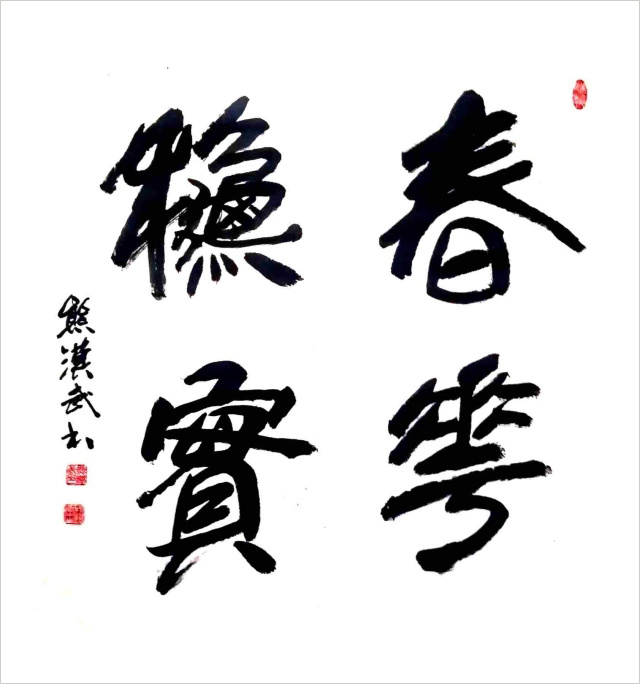 春華
龝實
熊漢武书